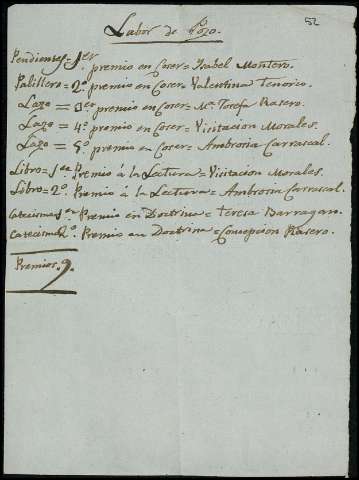 52
Labor de Gozo.
Pendientes = 1er premio en Coser = Ysabel Montero.
Palillero = 2º premio en Coser = Valentina Tenorio.
Lazo = 3er premio en Coser = Mª Josefa Rasero.
Lazo = 4º premio en Coser = Visitacion Morales.
Lazo = 5º premio en Coser = Ambrosia Carrascal.
Libro = 1er Premio á la Lectura = Visitacion Morales.
Libro = 2º Premio á la Lectura = Ambrosia Carrascal.
Catecismo 1er Premio en Doctrina = Teresa Barragan.
Catecismo 2º Premio en Doctrina = Concepcion Rasero.
Premios. 9.